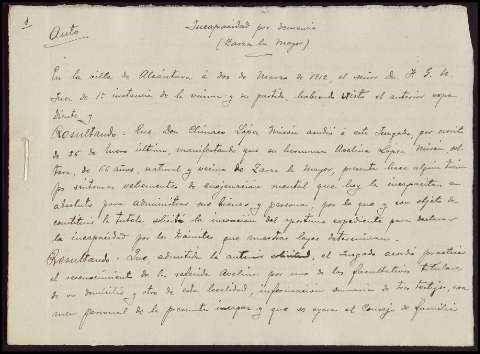 1
Auto
Incapacidad por demencia
(Zarza la Mayor)
En la villa de Alcántara á dos de Marzo de 1912, el señor D. F. G. U.
Juez de 1ª instancia de la misma y su partido, habiendo visto el anterior expe
diente, y
Resultando: Que Don Clímaco López Mirón acudió á este Juzgado, por escrito
de 26 de Enero último, manifestando que su hermana Avelina López Mirón sol-
tera, de 66 años, natural y vecina de Zarza la Mayor, presenta hace algún tiem-
po síntomas vehementes de enagenación mental que hoy la incapacitan en
absoluto para administrar sus bienes y persona, por lo que y con objeto de
constituir la tutela solicita la incoación del oportuno expediente para declarar
la incapacidad por los trámites que nuestras leyes determinan.
Resultando: Que, admitida la anterior solicitud, el Juzgado acordó practicar
el reconocimiento de la referida Avelina por uno de los facultativos titulares
de su domicilio y otro de esta localidad, información sumaria de tres testigos, exa-
men personal de la presunta incapaz y que se oyera al Consejo de familia